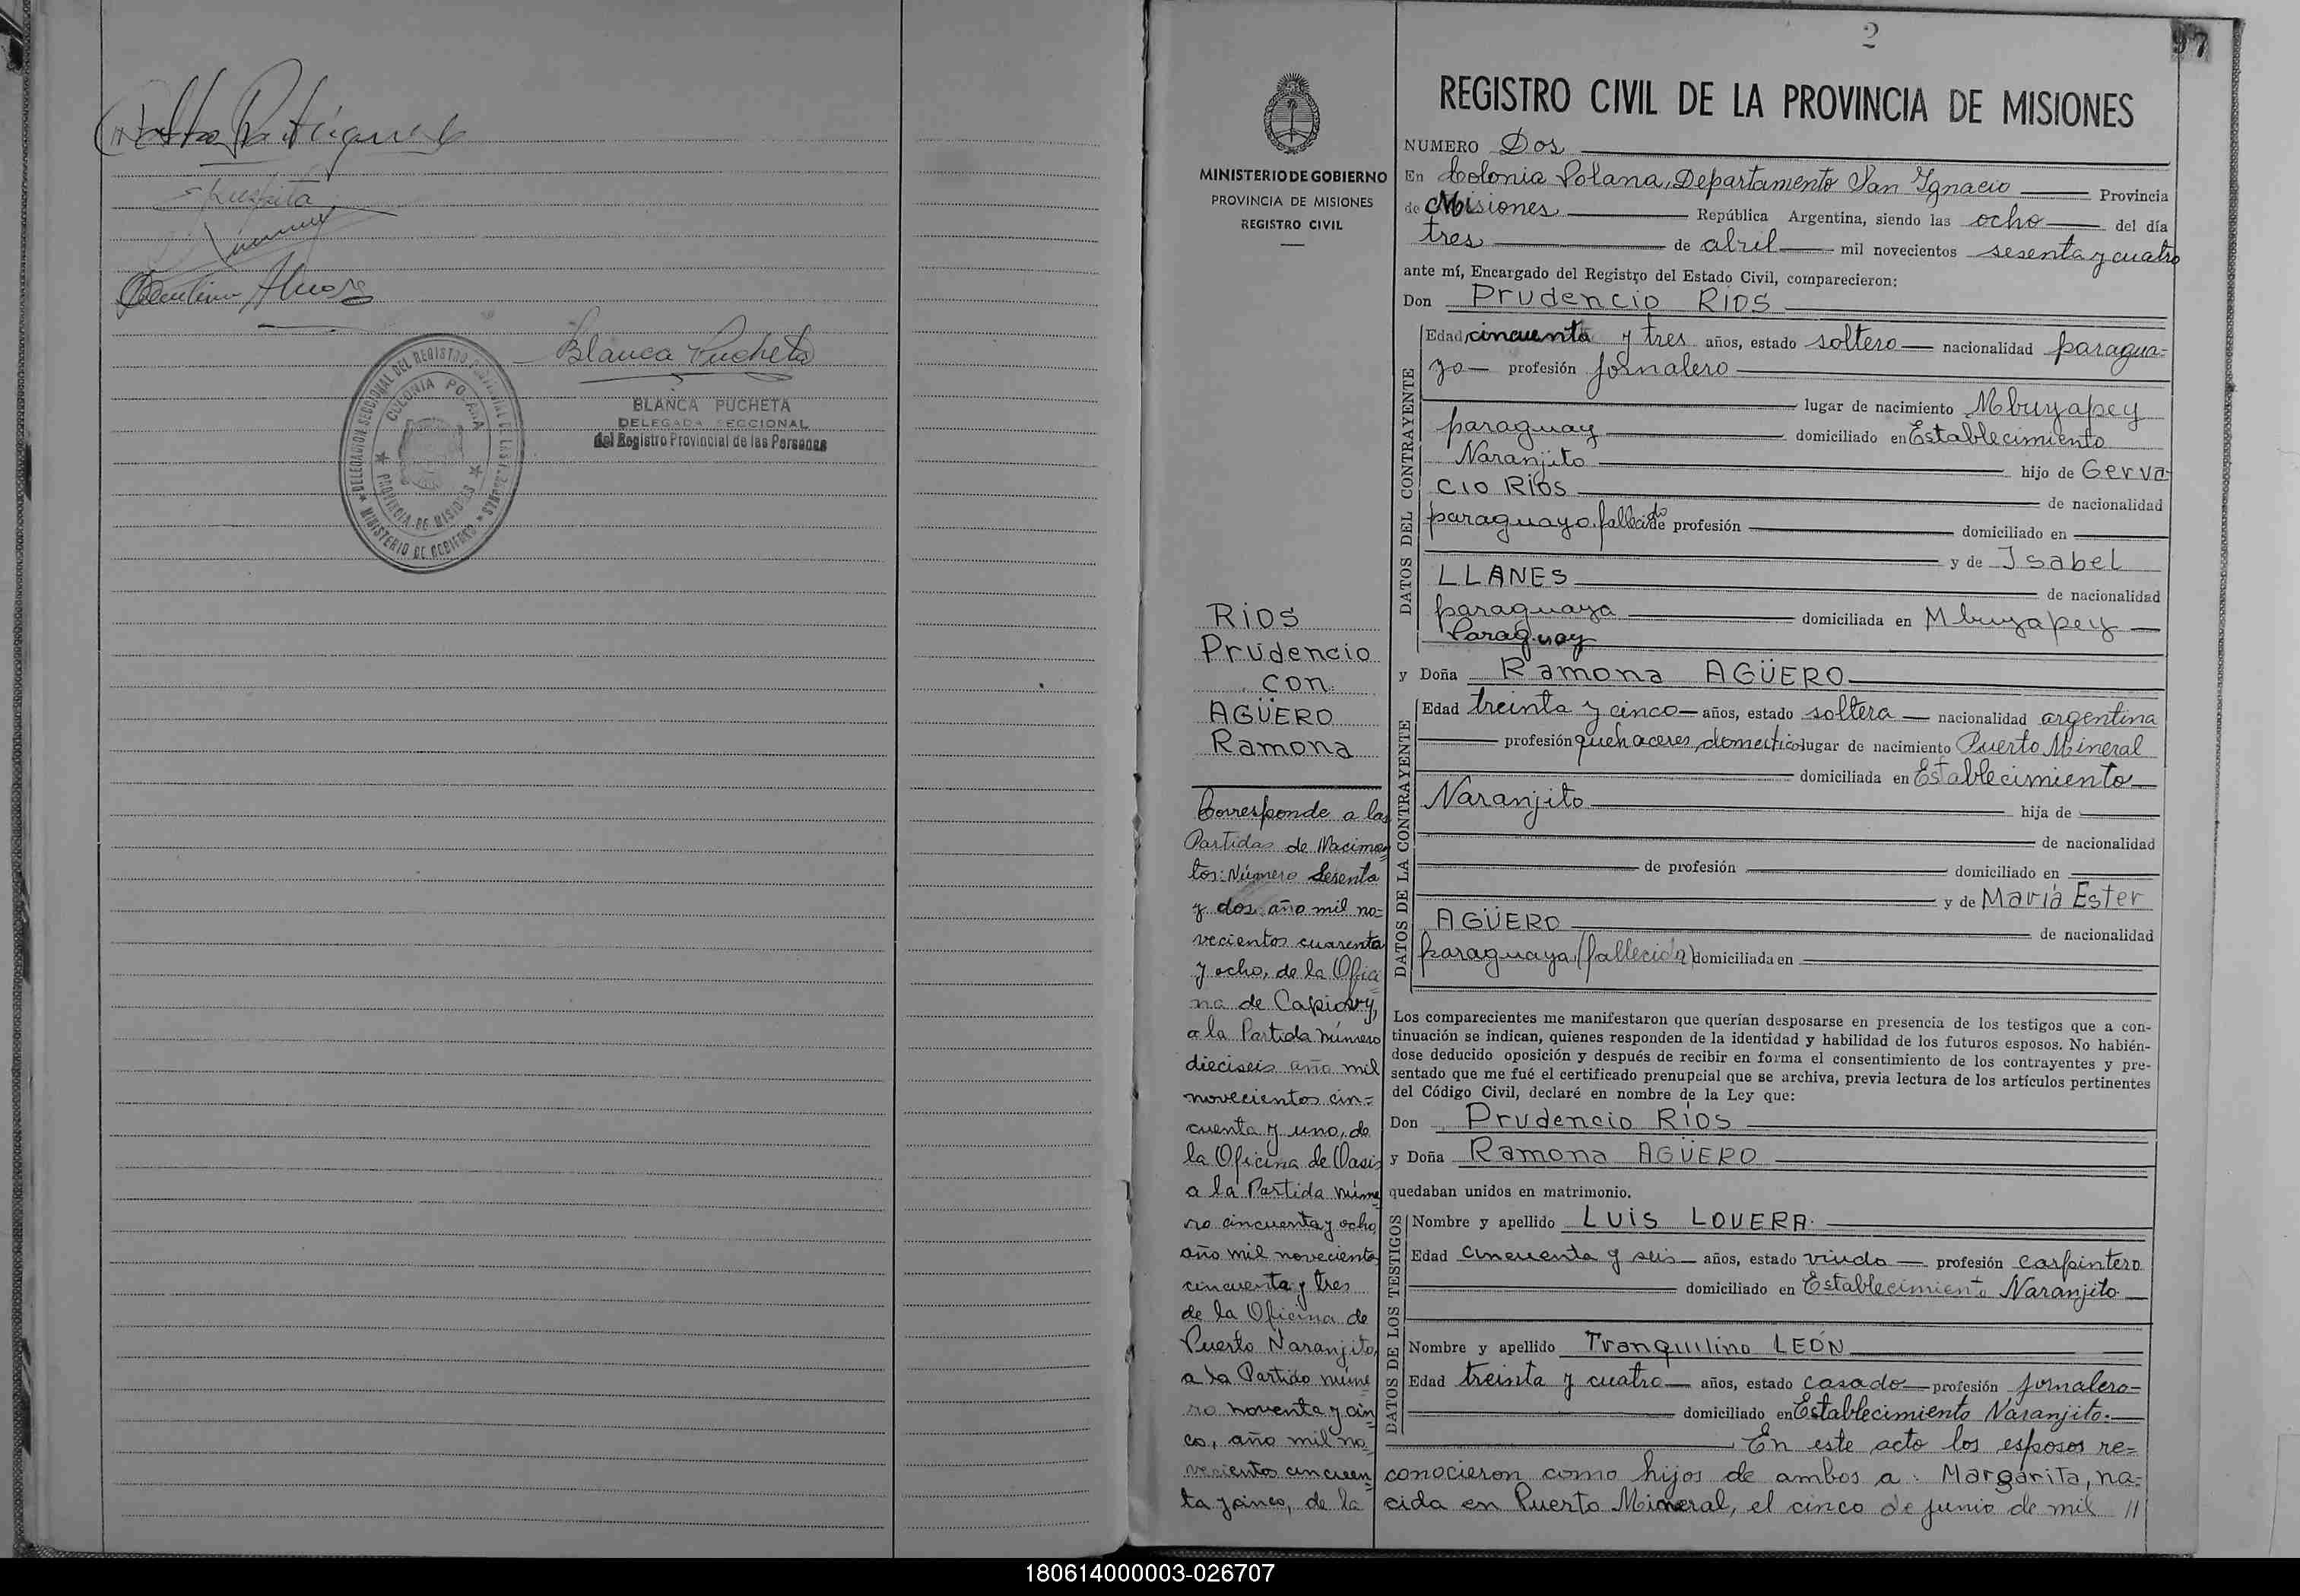 BLANCA PUCHETA
Blanca Pucheta
DELEGADA SECCIONAL
del Registro Provincial de las Personas
DELEGACION SECCIONAL DEL REGISTRO PROVINCIAL DE LAS PERSONAS
COLONIA POLANA
PROVINCIA DE MISIONES
MINISTERIO DE GOBIERNO
2
97
MINISTERIO DE GOBIERNO
PROVINCIA DE MISIONES
REGISTRO CIVIL
RIOS
Prudencio
con
AGÜERO
Ramona
Corresponde a las
Partidas de Nacimien=
tos: Número Sesenta
y dos año mil no=
vecientos cuarenta
y ocho, de la Ofici=
na de Capiovy,
a la Partida número
dieciseis año mil
novecientos cin=
cuenta y uno, de
la Oficina de Oasis
a la Partida núme=
ro cincuenta y ocho,
año mil novecientos
cincuenta y tres
de la Oficina de
Puerto Naranjito,
a la Partida núme=
ro noventa y cin=
co, año mil no=
vecientos cincuen=
ta y cinco, de la
REGISTRO CIVIL DE LA PROVINCIA DE MISIONES
NUMERO Dos
En Colonia Polana, Departamento San Ignacio Provincia
de Misiones República Argentina, siendo las ocho del día
tres de abril mil novecientos sesenta y cuatro
ante mí, Encargado del Registro del Estado Civil, comparecieron:
Don Prudencio RIOS
DATOS DEL CONTRAYENTE
Edad cincuenta y tres años, estado soltero nacionalidad paragua=
yo profesión jornalero
lugar de nacimiento Mbuyapey
paraguay domiciliado en Establecimiento
Naranjito hijo de Gerva-
cio RIOS de nacionalidad
paraguayo fallecido de profesión domiciliado en
y de Isabel
LLANES de nacionalidad
paraguaya domiciliada en Mbuyapey
Paraguay
y Doña Ramona AGÜERO
DATOS DE LA CONTRAYENTE
Edad treinta y cinco años, estado soltera nacionalidad argentina
profesión quehaceres domestico lugar de nacimiento Puerto Mineral
domiciliada en Establecimiento
Naranjito hija de
de nacionalidad
de profesión domiciliado en
y de María Ester
AGÜERO de nacionalidad
paraguaya (fallecida) domiciliada en
Los comparecientes me manifestaron que querían desposarse en presencia de los testigos que a con-
tinuación se indican, quienes responden de la identidad y habilidad de los futuros esposos. No habién-
dose deducido oposición y después de recibir en forma el consentimiento de los contrayentes y pre-
sentado que me fué el certificado prenupcial que se archiva, previa lectura de los artículos pertinentes
del Código Civil, declaré en nombre de la Ley que:
Don Prudencio RIOS
y Doña Ramona AGÜERO
quedaban unidos en matrimonio.
DATOS DE LOS TESTIGOS
Nombre y apellido LUIS LOVERA
Edad cincuenta y seis años, estado viudo profesión carpintero
domiciliado en Establecimiento Naranjito
Nombre y apellido Tranquilino LEÓN
Edad treinta y cuatro años, estado casado profesión jornalero-
domiciliado en Establecimiento Naranjito.
En este acto los esposos re=
conocieron como hijos de ambos a: Margarita, na-
cida en Puerto Mineral, el cinco de junio de mil //
180614000003-026707